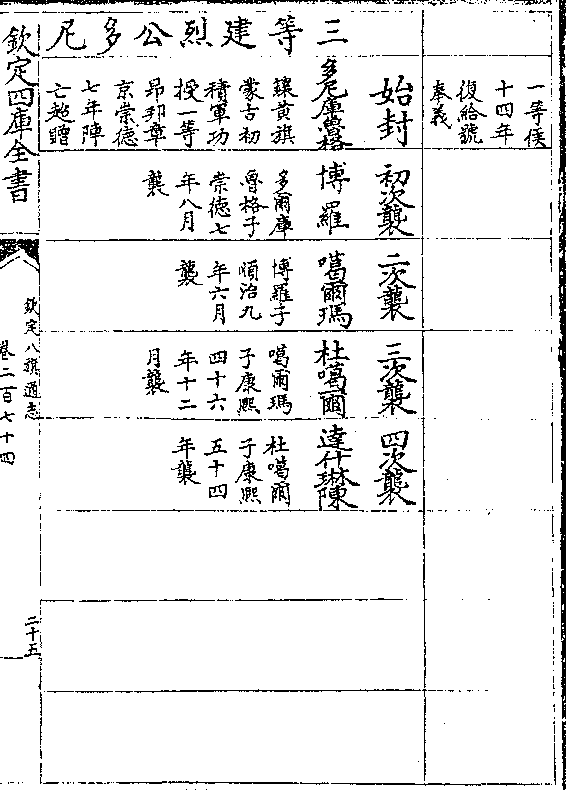 一等侯
十四年
復給號
奉義
三等建烈公多尼
始封
多尼庫魯格
鑲黃旗
蒙古初
積軍功
授一等
昂邦章
京崇德
七年陣
亡超贈
初次襲
博羅
多爾庫
魯格子
崇徳七
年八月
襲
二次襲
噶爾瑪
博羅子
順治九
年六月
襲
三次襲
杜噶爾
噶爾瑪
子康熙
四十六
年十二
月襲
四次襲
達什琳陳
杜噶爾
子康熙
五十四
年襲
欽定四庫全書
欽定八旗通志
卷二百七十四
二十五